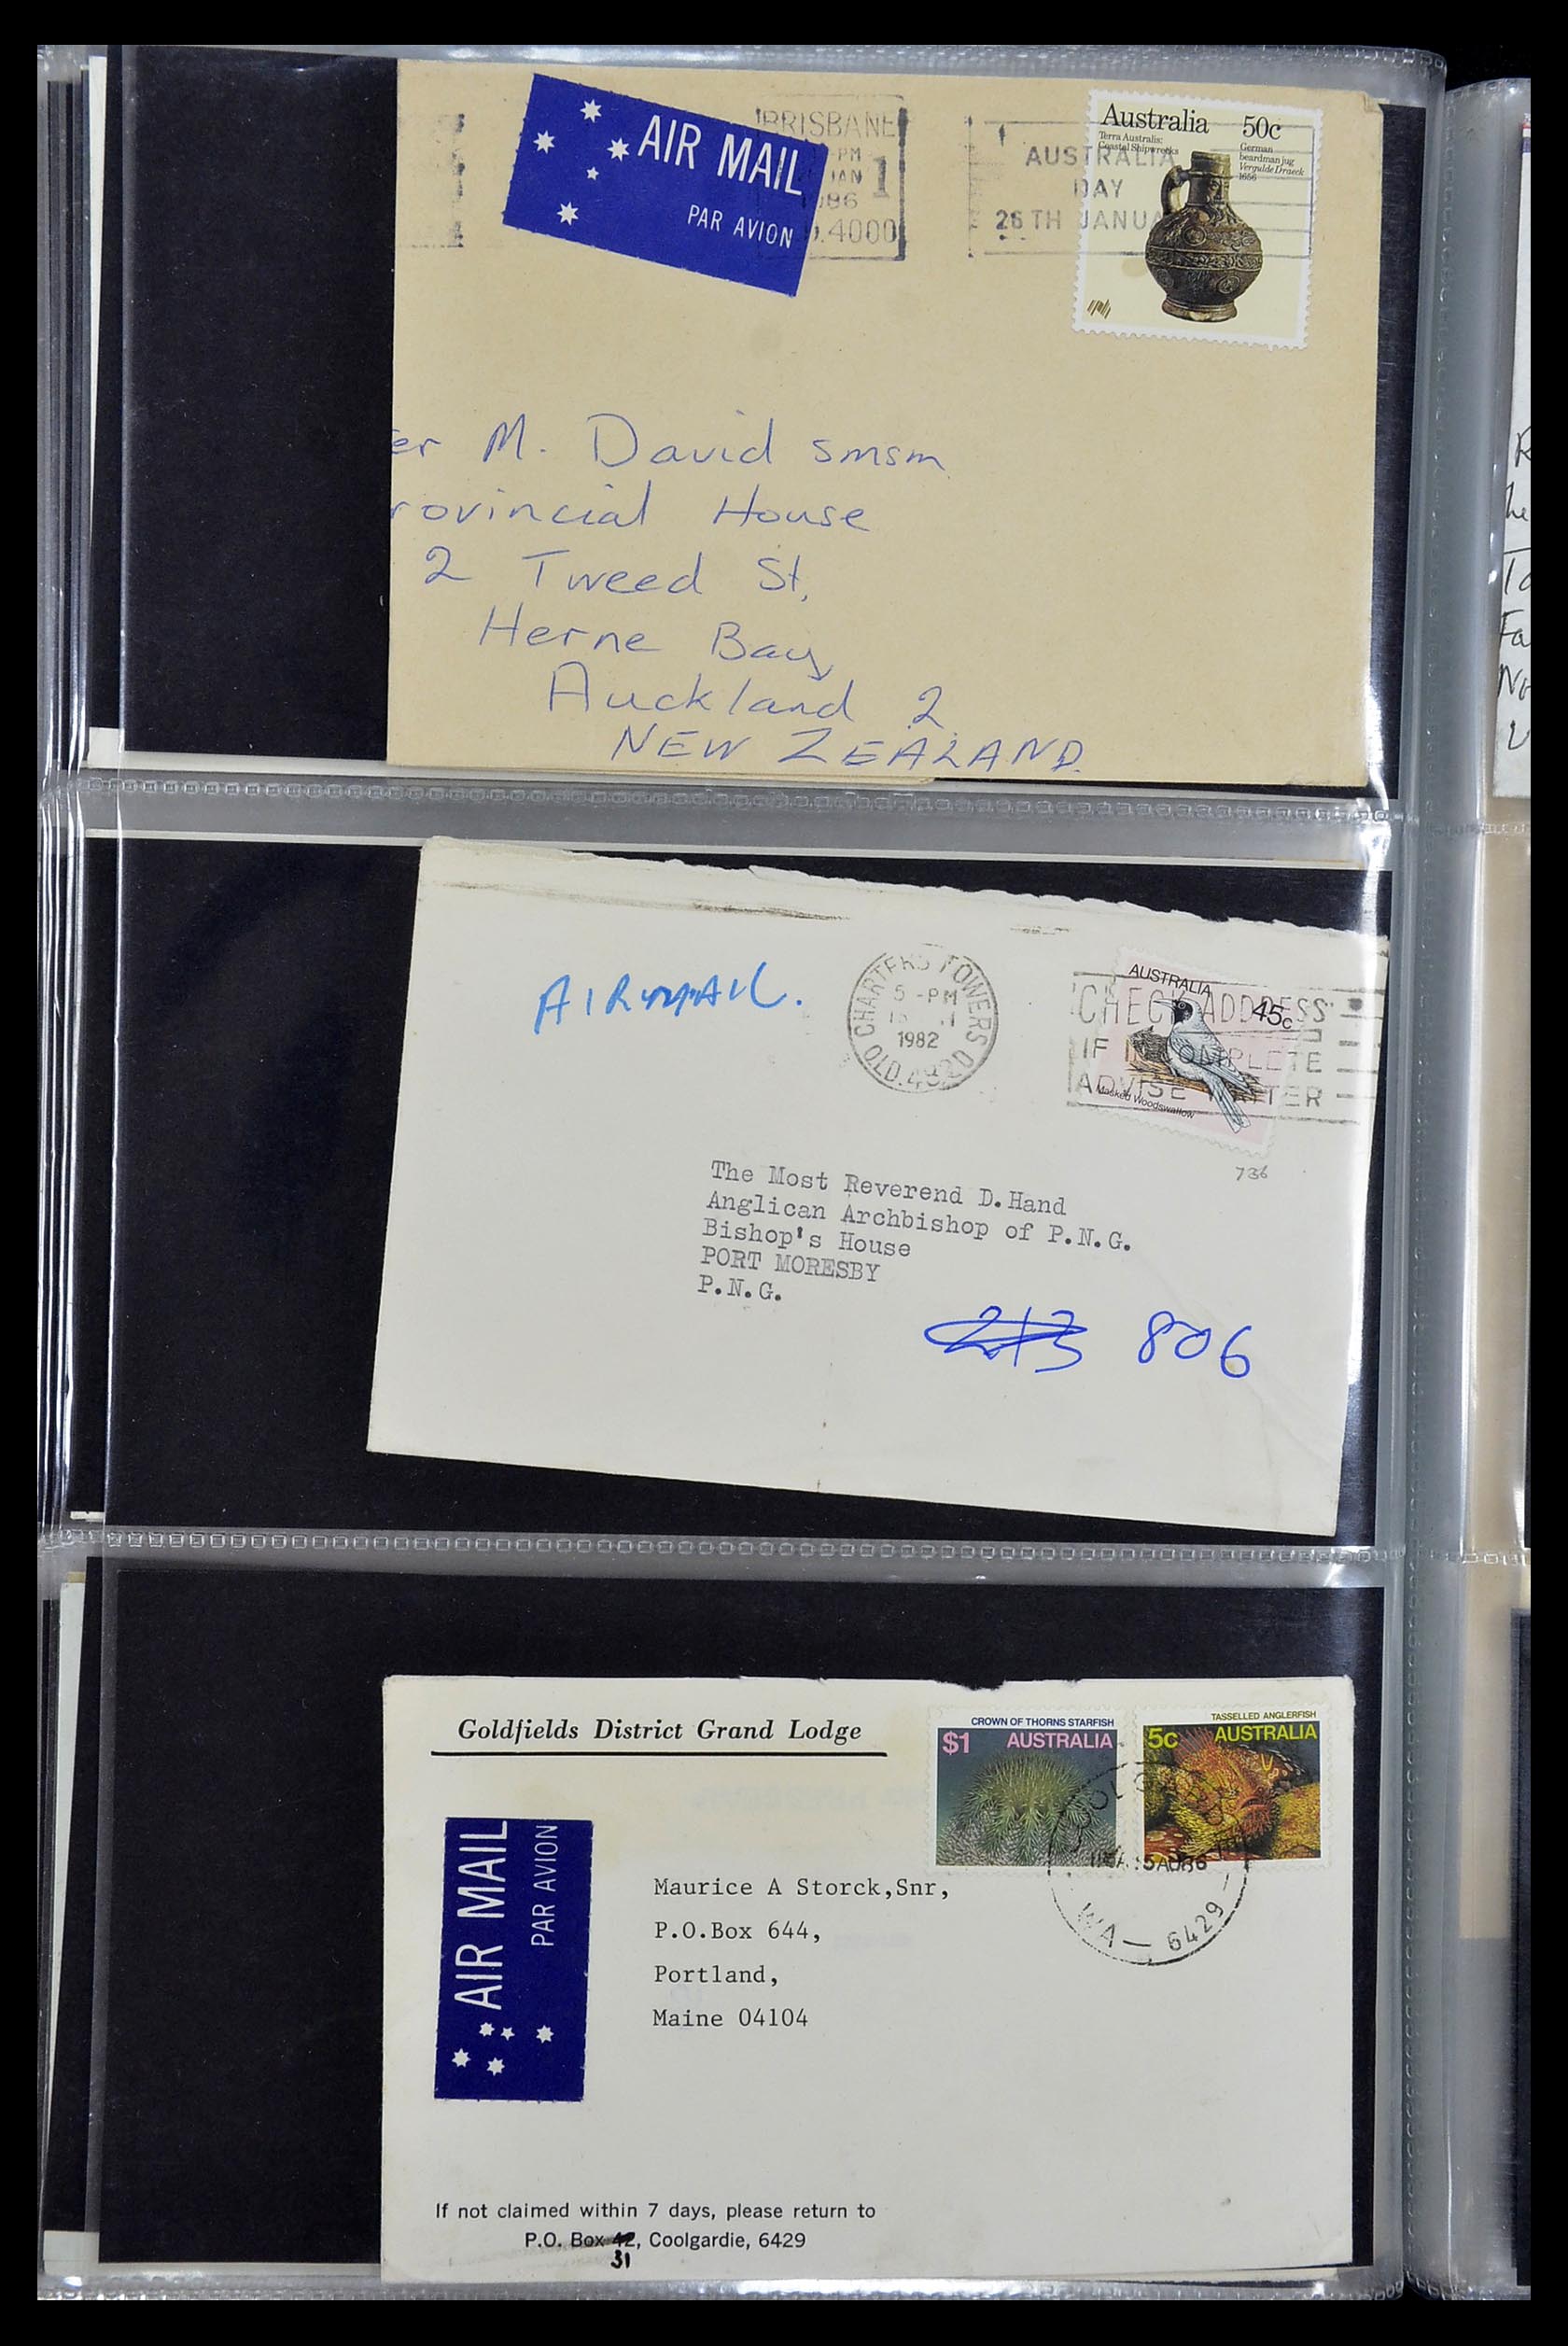 AIR MAIL
PAR AVION
BRISBANE
PM
JAN
1
4000
AUSTRALIA
DAY
26TH JANUA
Australia 50c
Terra Australis:
Coastal Shipwrecks
German
beardman jug
Vergulde Draeck
1656
er M. David smsm
rovincial House
2 Tweed St,
Herne Bay,
Auckland 2
NEW ZEALAND.
AIRMAIL.
CHARTERS TOWERS QLD. 4820
5 -PM
1982
CHECK ADDRESS
IF INCOMPLETE
ADVISE WRITER
AUSTRALIA
45c
Masked Woodswallow
736
The Most Reverend D.Hand
Anglican Archbishop of P.N.G.
Bishop's House
PORT MORESBY
P.N.G.
213 806
Goldfields District Grand Lodge
CROWN OF THORNS STARFISH
$1 AUSTRALIA
TASSELLED ANGLERFISH
5c AUSTRALIA
WA — 6429 —
AIR MAIL
PAR AVION
Maurice A Storck,Snr,
P.O.Box 644,
Portland,
Maine 04104
If not claimed within 7 days, please return to
P.O. Box 42, Coolgardie, 6429
31